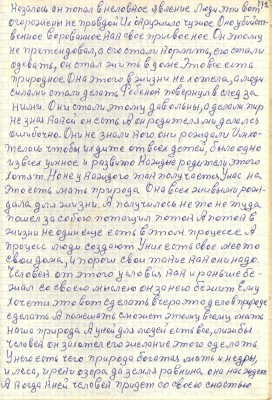 Казалось он попал в неловкое явление Люди эти вот
огорожены не правдой Их окружило чужое Оно убийст-
венное ворованное как свое присвоенное. Он этому
не претендовал, а его стали кормить, его стали
одевать, он стал жить в доме Это все есть
природное Она этого в жизни не хотела, а люди
силами стали делать, ребенок повернул вслед за
ними. Они стали этому довольны, а делали пир
не зная какой он есть А он родителями делался
ошибочно. Они не знали кого они рождали Им хо-
телось чтобы их дитё от всех детей, было одно
из всех умное и развито Каждые родители этого
хотят. Но не у каждого так получается У нас на
это есть мать природа Она всех живыми рож-
дала для жизни. А получилось не то не туда
пошел за собою потащил поток А поток в
жизни не один еще есть в этом процессе. А
процесс люди создают У них есть свое место
свои дома, и пороги свои такие как они надо.
Человек от этого условия как и раньше бе-
жал со своею мыслею он за нею бежит Ему
хочется это вот сделать вчера это дело природе
сделать А помешать сможет этому всему опять
наша природа А у ней для людей есть все, лишь бы
человек он захотел его желание этого сделать.
У него есть чего природа богатая мать и недры,
и леса, и реки озера да земля равнина. она нас ждет
А когда к ней человек придет со своею снастью